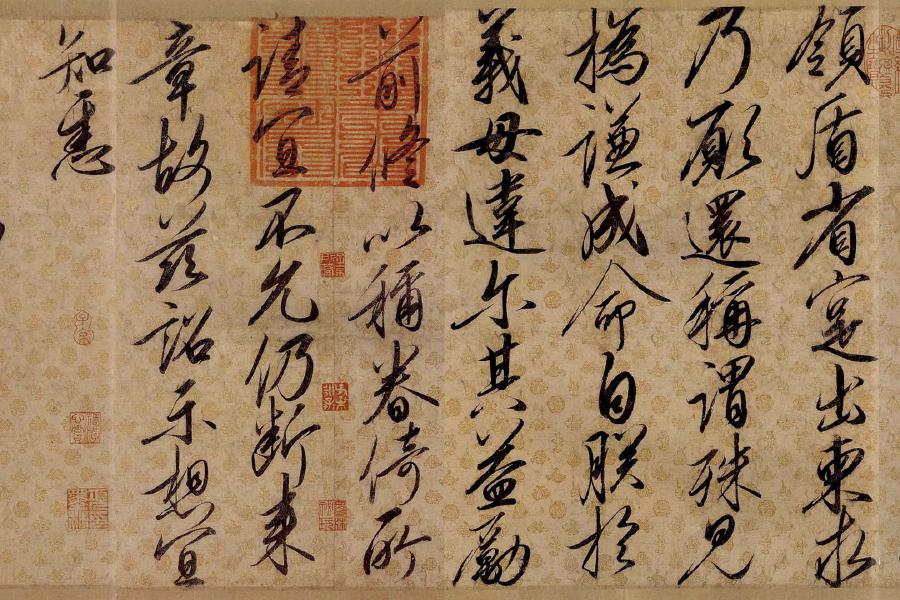 領盾省寔出柬求
乃願還稱謂殊見
撝謙成命自朕於
義毋違尔其益勵
前修以稱眷倚所
請宜不允仍斷來
章故茲詔示想宜
知悉